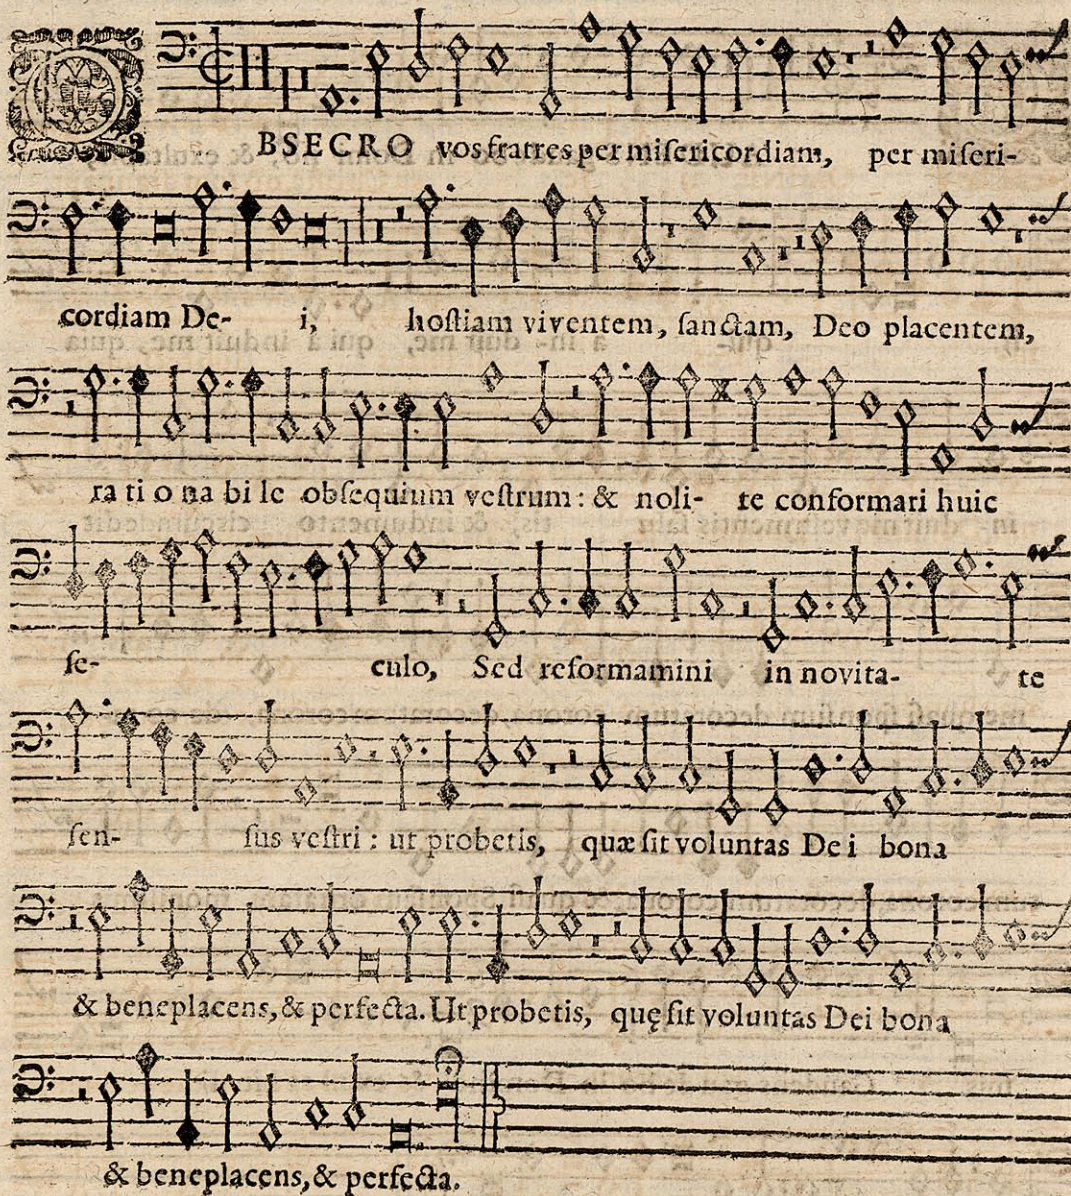 OBSECRO vos fratres per miſericordiam, per miſeri-
cordiam De- i, hoſtiam viventem, ſanctam, Deo placentem,
ra ti o na bi le obſequium veſtrum: & noli- te conformari huic
ſe- culo, Sed reformamini in novita- te
ſen- ſus veſtri: ut probetis, quæ ſit voluntas De i bona
& beneplacens, & perfecta. Ut probetis, quę ſit voluntas Dei bona
& beneplacens, & perfecta.